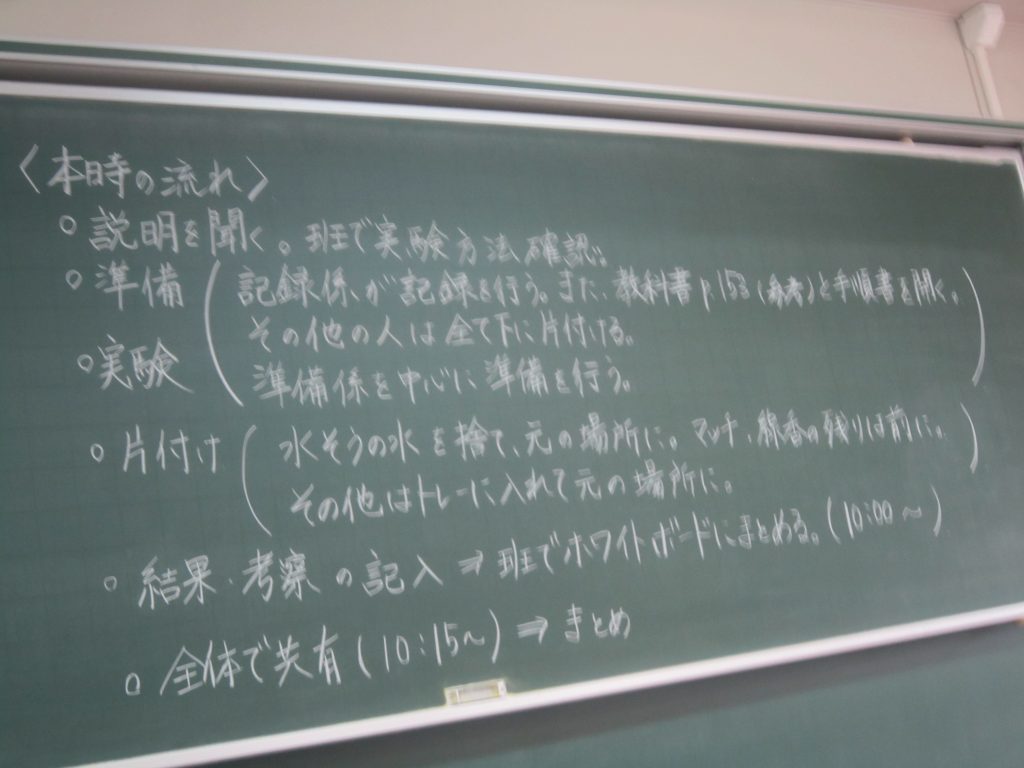 〈本時の流れ〉
○ 説明を聞く。班で実験方法確認。
○ 準備 ( 記録係が記録を行う。また、教科書P153(参考)と手順書を開く。
その他の人は全て下に片付ける。
○ 実験 準備係を中心に準備を行う。)
○ 片付け ( 水そうの水を捨て、元の場所に。マッチ、線香の残りは前に。
その他はトレーに入れて元の場所に。)
○ 結果・考察の記入 ⇒ 班でホワイトボードにまとめる。(10:00~)
○ 全体で共有(10:15~) ⇒ まとめ